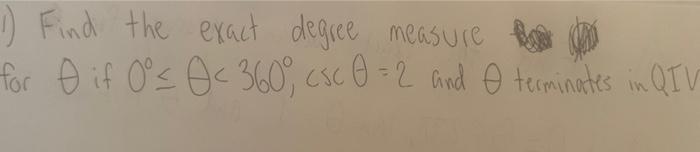 1) Find the exact degree measure
for θ if 0° ≤ θ < 360°, csc θ = 2 and θ terminates in QIV